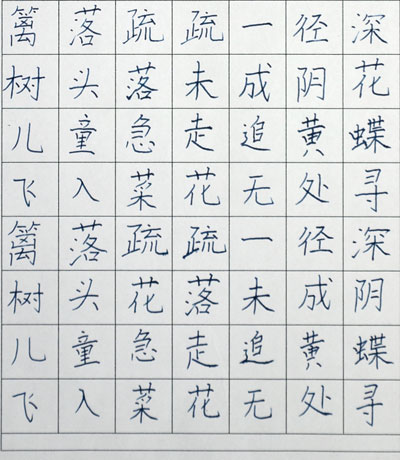 篱落疏疏一径深
树头落未成阴花
儿童急走追黄蝶
飞入菜花无处寻
篱落疏疏一径深
树头花落未成阴
儿童急走追黄蝶
飞入菜花无处寻